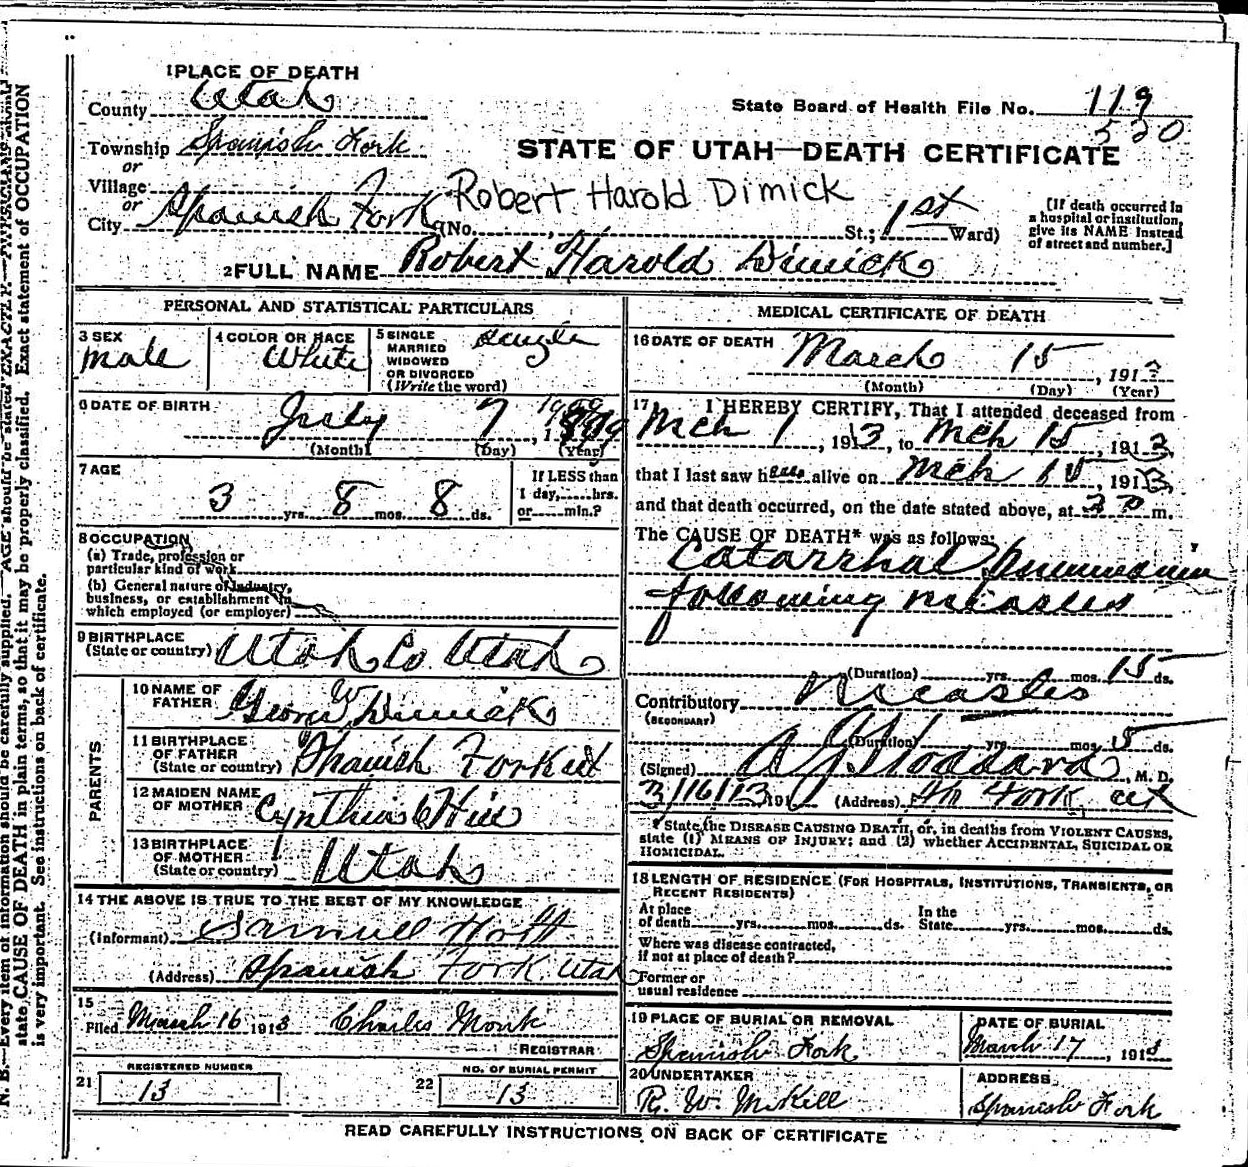 1 PLACE OF DEATH
County Utah
State Board of Health File No. 119
520
Township Spanish Fork
or
Village
or
City Spanish Fork
STATE OF UTAH—DEATH CERTIFICATE
Robert Harold Dimick
(No. St.; 1st Ward)
[If death occurred in
a hospital or institution,
give its NAME instead
of street and number.]
2 FULL NAME Robert Harold Dimick
PERSONAL AND STATISTICAL PARTICULARS
3 SEX
Male
4 COLOR OR RACE
White
5 SINGLE
MARRIED
WIDOWED
OR DIVORCED
(Write the word)
Single
6 DATE OF BIRTH
July 7, 1909
(Month) (Day) (Year)
7 AGE
3 yrs. 8 mos. 8 ds.
If LESS than
1 day, hrs.
or min.?
8 OCCUPATION
(a) Trade, profession or
particular kind of work
(b) General nature of industry,
business, or establishment in
which employed (or employer)
9 BIRTHPLACE
(State or country) Utah Co Utah
PARENTS
10 NAME OF
FATHER George W Dimick
11 BIRTHPLACE
OF FATHER
(State or country) Spanish Fork Ut
12 MAIDEN NAME
OF MOTHER Cynthia
13 BIRTHPLACE
OF MOTHER
(State or country) Utah
14 THE ABOVE IS TRUE TO THE BEST OF MY KNOWLEDGE
(Informant) Samuel
(Address) Spanish Fork Utah
15
Filed March 16 1913 Charles Monk
REGISTRAR
21 REGISTERED NUMBER
13
22 NO. OF BURIAL PERMIT
13
MEDICAL CERTIFICATE OF DEATH
16 DATE OF DEATH March 15, 1913
(Month) (Day) (Year)
17 I HEREBY CERTIFY, That I attended deceased from
Mch 1, 1913, to Mch 15, 1913,
that I last saw h alive on Mch 15, 1913,
and that death occurred, on the date stated above, at m.
The CAUSE OF DEATH* was as follows:
Catarrhal Pneumonia
following measles
(Duration) yrs. mos. 15 ds.
Contributory Measles
(SECONDARY)
(Duration) yrs. mos. 15 ds.
(Signed) , M. D.
3/16/13 191 (Address) Fork Ut
* State the DISEASE CAUSING DEATH, or, in deaths from VIOLENT CAUSES,
state (1) MEANS OF INJURY; and (2) whether ACCIDENTAL, SUICIDAL OR
HOMICIDAL.
18 LENGTH OF RESIDENCE (FOR HOSPITALS, INSTITUTIONS, TRANSIENTS, OR
RECENT RESIDENTS)
At place
of death yrs. mos. ds.
In the
State yrs. mos. ds.
Where was disease contracted,
if not at place of death?
Former or
usual residence
19 PLACE OF BURIAL OR REMOVAL
Spanish Fork
DATE OF BURIAL
March 17, 1913
20 UNDERTAKER
R. W. McKell
ADDRESS
Spanish Fork
READ CAREFULLY INSTRUCTIONS ON BACK OF CERTIFICATE
N. B.—Every item of information should be carefully supplied. AGE should be stated EXACTLY. PHYSICIANS should
state CAUSE OF DEATH in plain terms, so that it may be properly classified. Exact statement of OCCUPATION
is very important. See instructions on back of certificate.